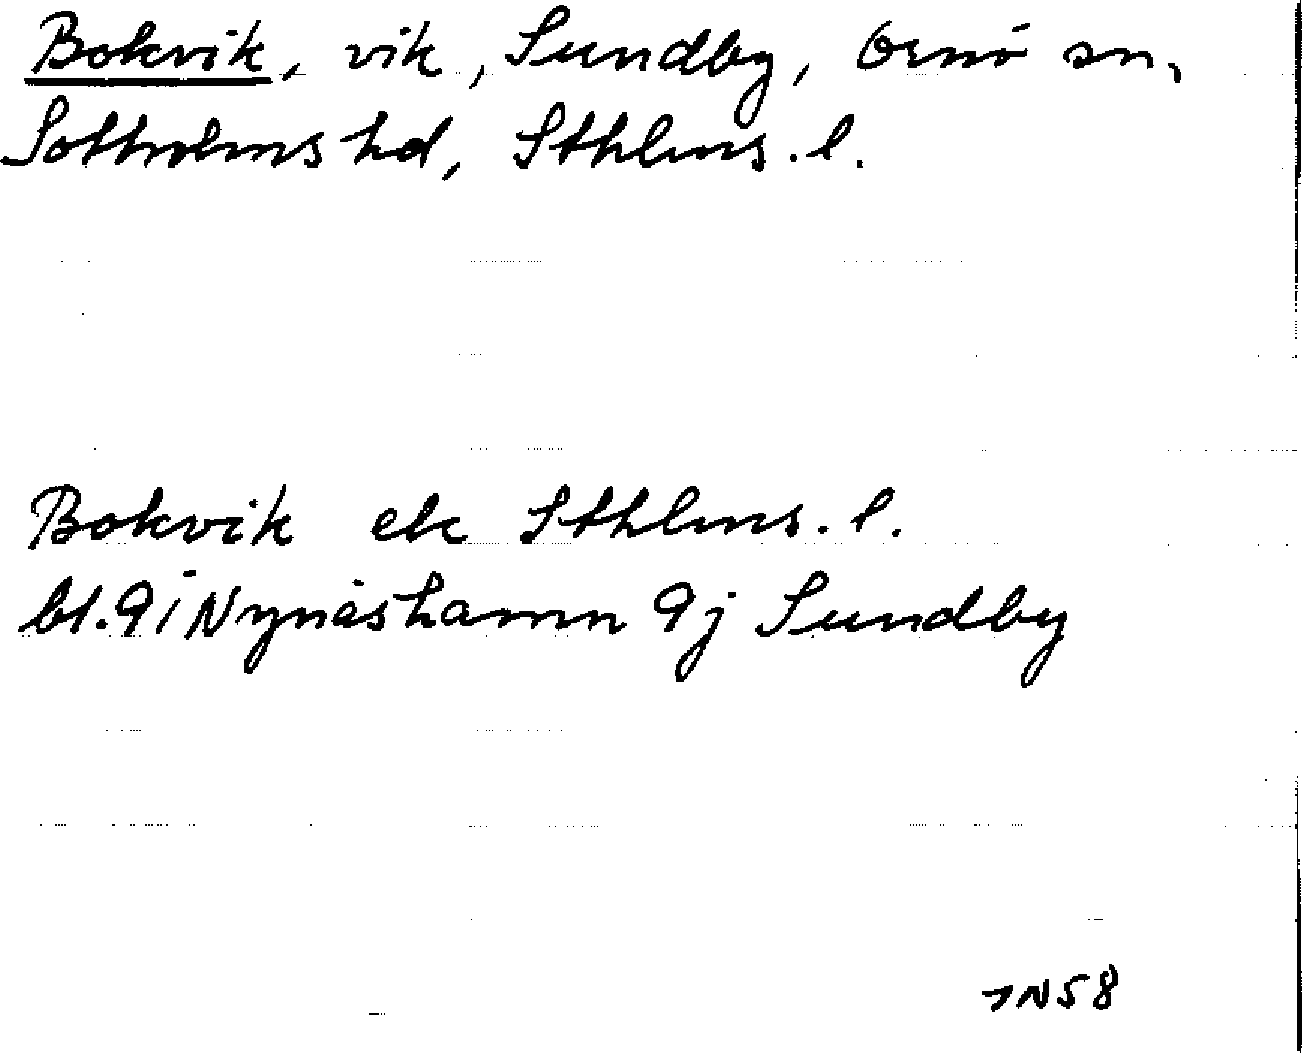 Bokvik, vik, Sundby, Ornö sn,
Sotholms hd, Sthlms. l.
Bokvik ek Sthlms. l.
bl. 9 i Nynäshamn 9j Sundby
JN58